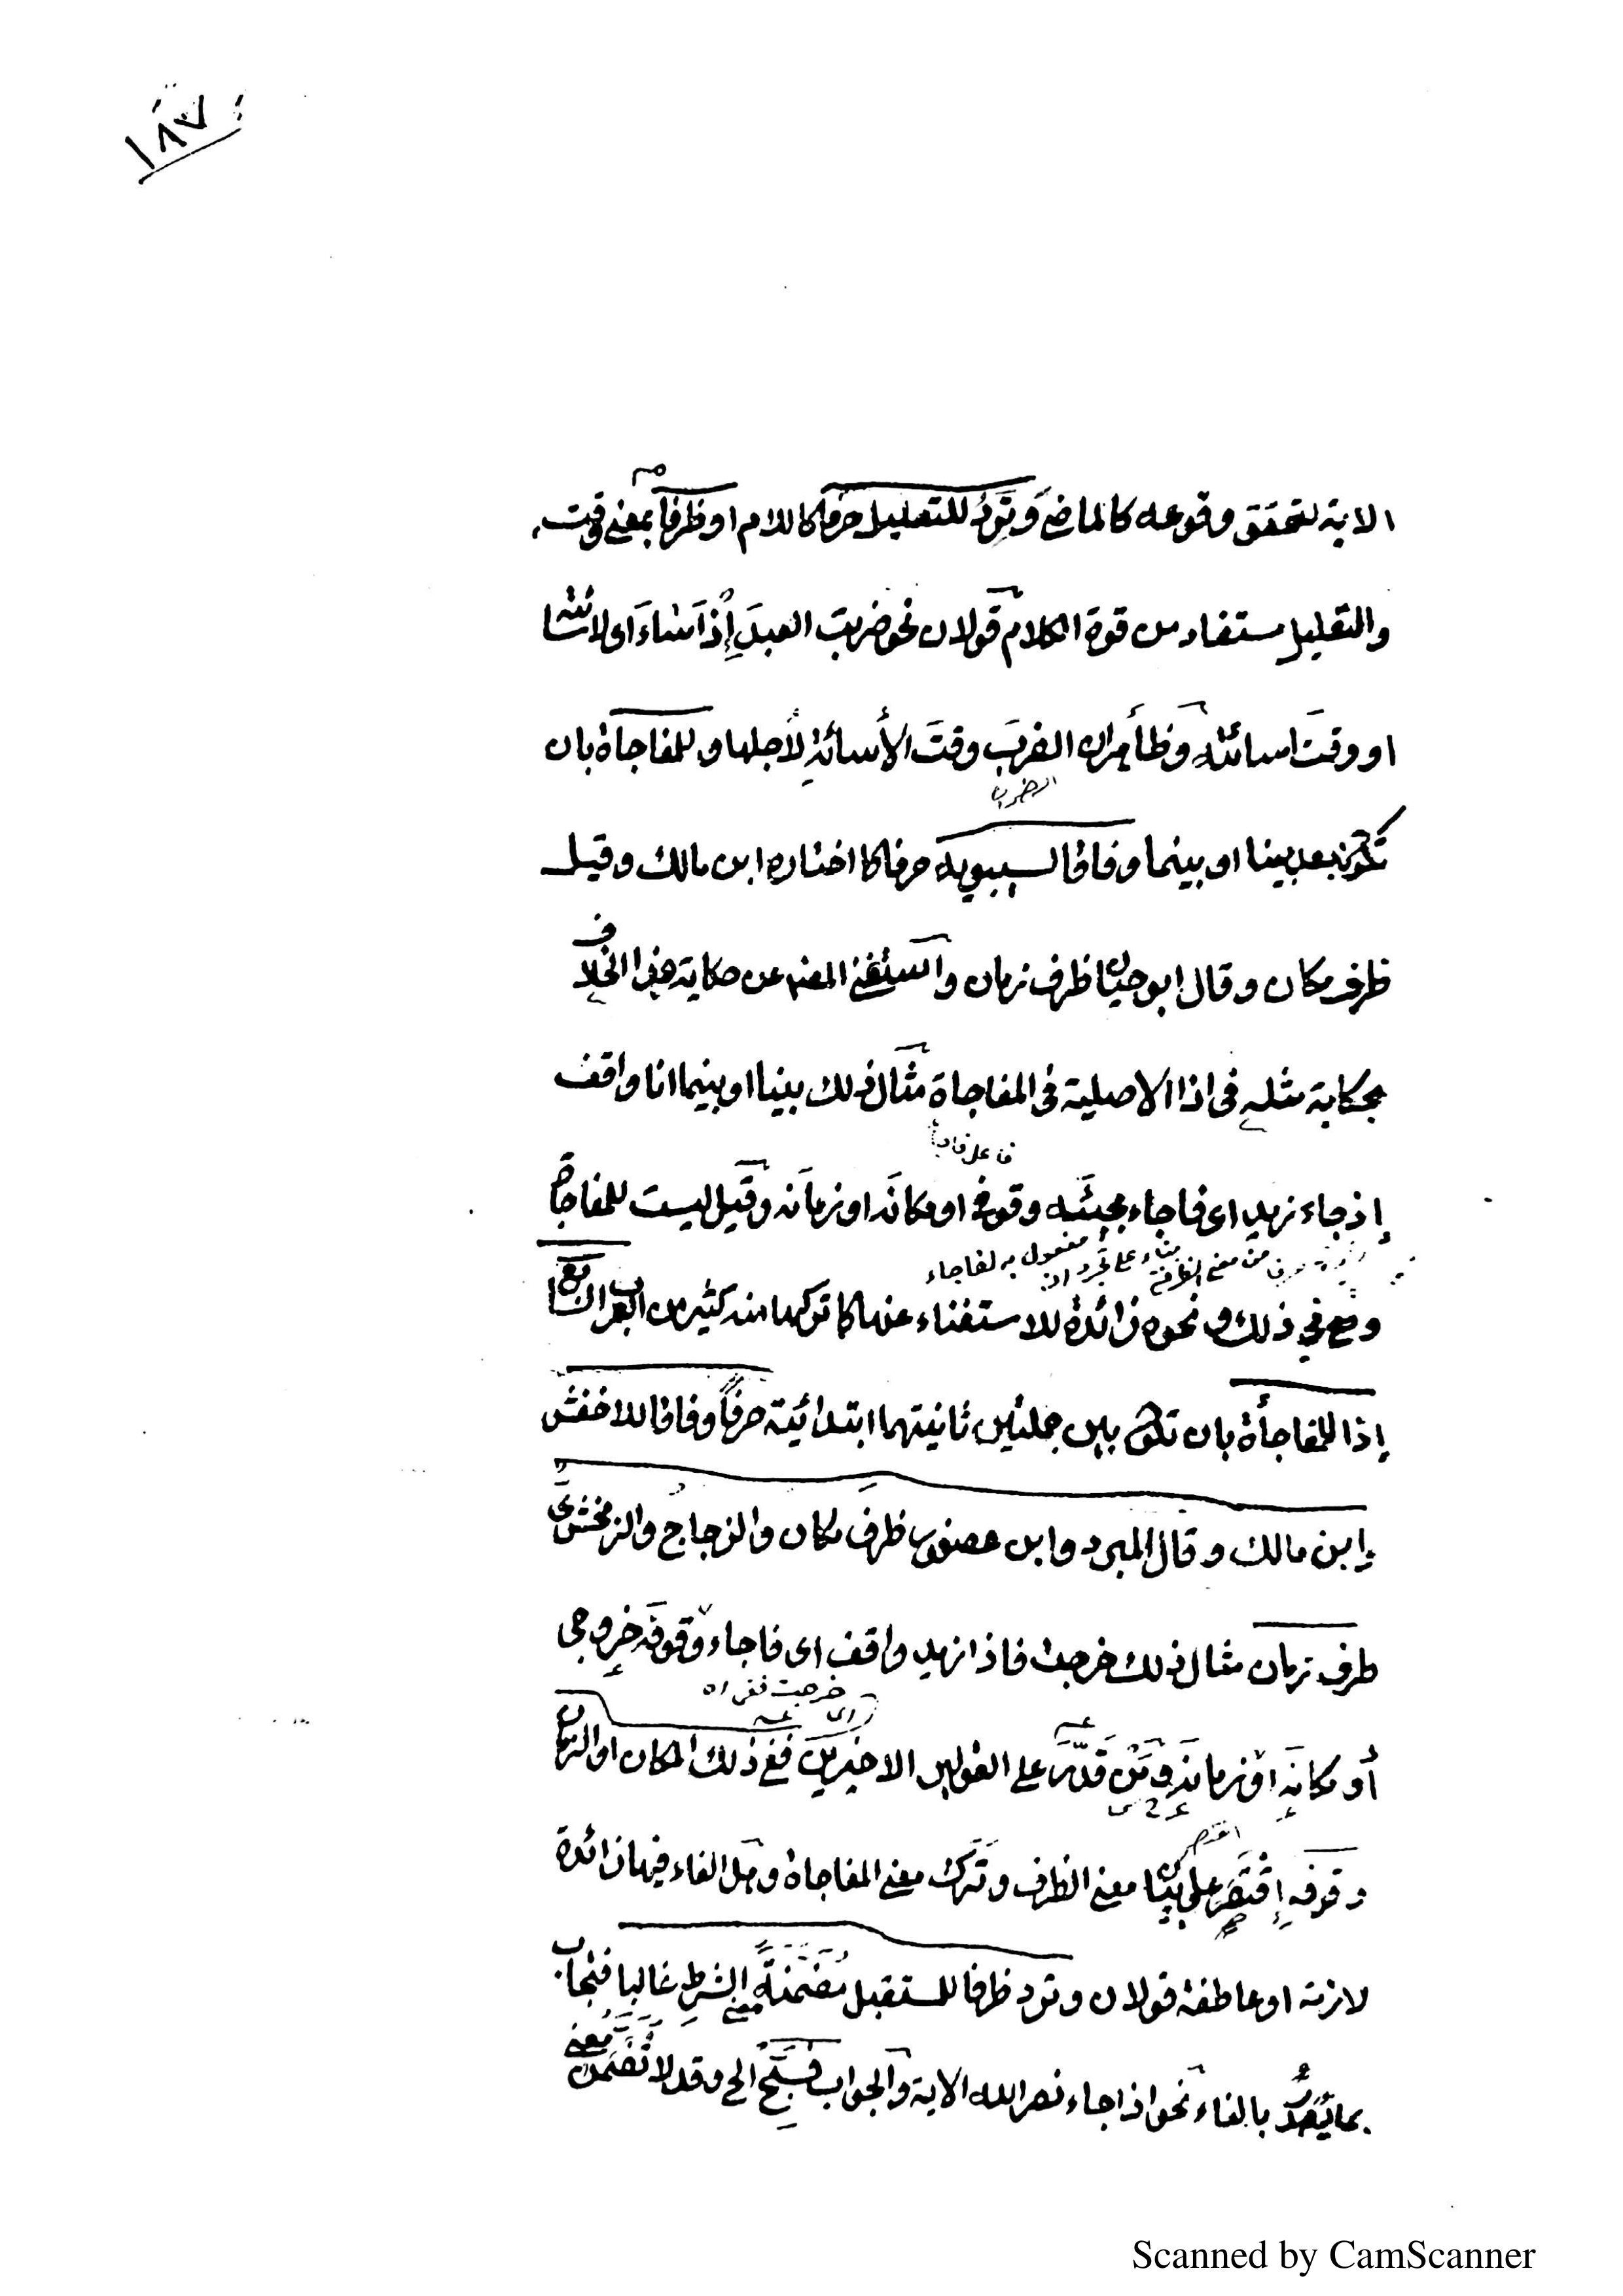 ١٨٧
الاية لتحقق وقوعه كالماضى وتَرِدُ للتعليل حرفا كاللام او ظرفاً بمعنى وقت
والتعليل مستفاد من قوة الكلام قولان نحو ضربت العبدَ إذْ أسَاءَ اى لاسائته
او وقتَ اسائته وظاهر ان الضربَ وقتَ الأسائةِ لأجلها وللمفاجاة بان
تكون بعد بينا او بينما وفاقا لسيبويه حرفا كما اختاره ابن مالك وقيل
ظرف مكان وقال ابو حيان ظرف زمان واستغنى المصنف عن حكاية هذا الخلاف
بحكاية مثله فى اذا الاصلية فى المفاجاة مثال ذلك بينا او بينما انا واقف
إذ جاء زيد اى فاجاء مجيئَه وقوفى او مكانَه او زمانَه وقيل ليست للمفاجاة
مفعول به لفاجاء
وهى في ذلك ونحوه زائدة للاستغناء عنها كما تركها منه كثير من العرب الرابع
إذا للمفاجأة بان تكون بين جملتين ثانيتهما ابتدائية حرفاً وفاقا للاخفش
وابن مالك وقال المبرد وابن عصفور ظرف مكان والزجاج والزمخشرى
ظرف زمان مثال ذلك خرجت فاذا زيد واقف اى فاجاء وقوفَه خروجى
أو مكانِه او زمانِه ومَنْ قدَّرَ على القولين الاخيرين ففى ذلك المكان او الزمان
وقوفه إقْتَصَرَ على بيان معنى الظرف وتَرَكَ معنى المفاجاة وهل الفاء فيها زائدة
لازمة او عاطفة قولان وترد ظرفا للمستقبل مُضَمَّنَةً معنى الشرطِ غالبا فتُجاب
بما يُصَدَّرُ بالفاء نحو اذا جاء نصر الله الاية والجواب فسَبِّحْ الخ وقد لا تُضَمَّن معنى
Scanned by CamScanner